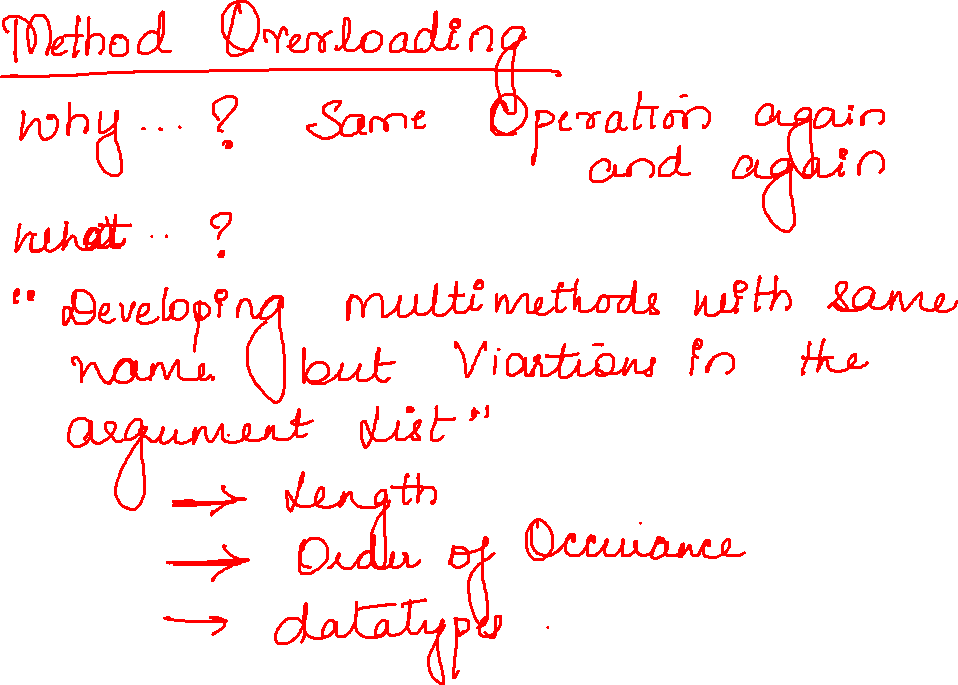 Method Overloading
Why...? Same Operation again
and again
what..? 
"Developing multimethods with same
name but Viartions in the
argument List"
→ Length
→ Order of Occurance
→ datatypes.